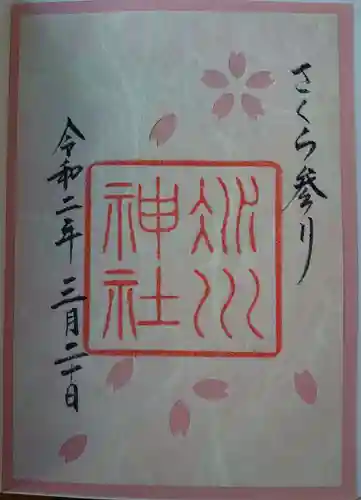 さくら参り
氷川
神社
令和二年 三月二十日